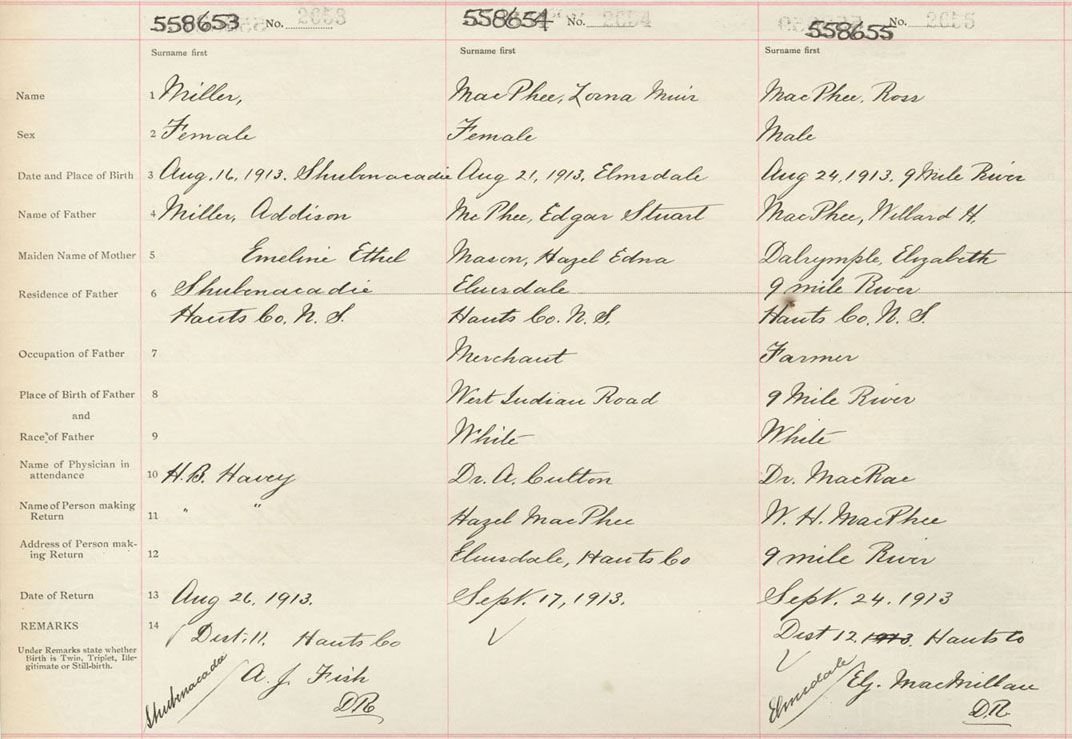 558653 No. 2653 558654 No. 2654 558655 No. 2655
Surname first Surname first Surname first
Name 1 Miller, MacPhee, Lorna Muir MacPhee, Ross
Sex 2 Female Female Male
Date and Place of Birth 3 Aug. 16, 1913. Shubenacadie Aug 21, 1913, Elmsdale Aug 24, 1913. 9 Mile River
Name of Father 4 Miller, Addison McPhee, Edgar Stuart MacPhee, Willard H.
Maiden Name of Mother 5 Emeline Ethel Mason, Hazel Edna Dalrymple, Elizabeth
Residence of Father 6 Shubenacadie Elmsdale 9 mile River
Hants Co. N. S. Hants Co. N. S. Hants Co. N. S.
Occupation of Father 7 Merchant Farmer
Place of Birth of Father 8 West Indian Road 9 Mile River
and
Race of Father 9 White White
Name of Physician in
attendance 10 H. B. Havey Dr. A. Culton Dr. MacRae
Name of Person making
Return 11 " " Hazel MacPhee W. H. MacPhee
Address of Person mak-
ing Return 12 Elmsdale, Hants Co 9 mile River
Date of Return 13 Aug 26, 1913. Sept. 17, 1913. Sept. 24. 1913
REMARKS 14 Dist. 11. Hants Co Dist 12. 1913. Hants Co
Under Remarks state whether
Birth is Twin, Triplet, Ille-
gitimate or Still-birth.
Shubenacadie A. J. Fish Elmsdale Elz. MacMillan
DR D.R.